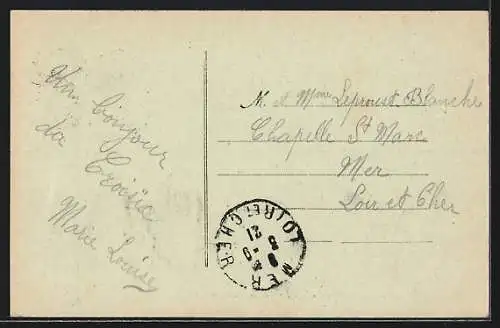 Un bonjour
du Croisic
Marie Louise
M. et Mme Leproust-Blanche
Chapelle St Marc
Mer
Loir et Cher
MER
LOIR ET CHER
21